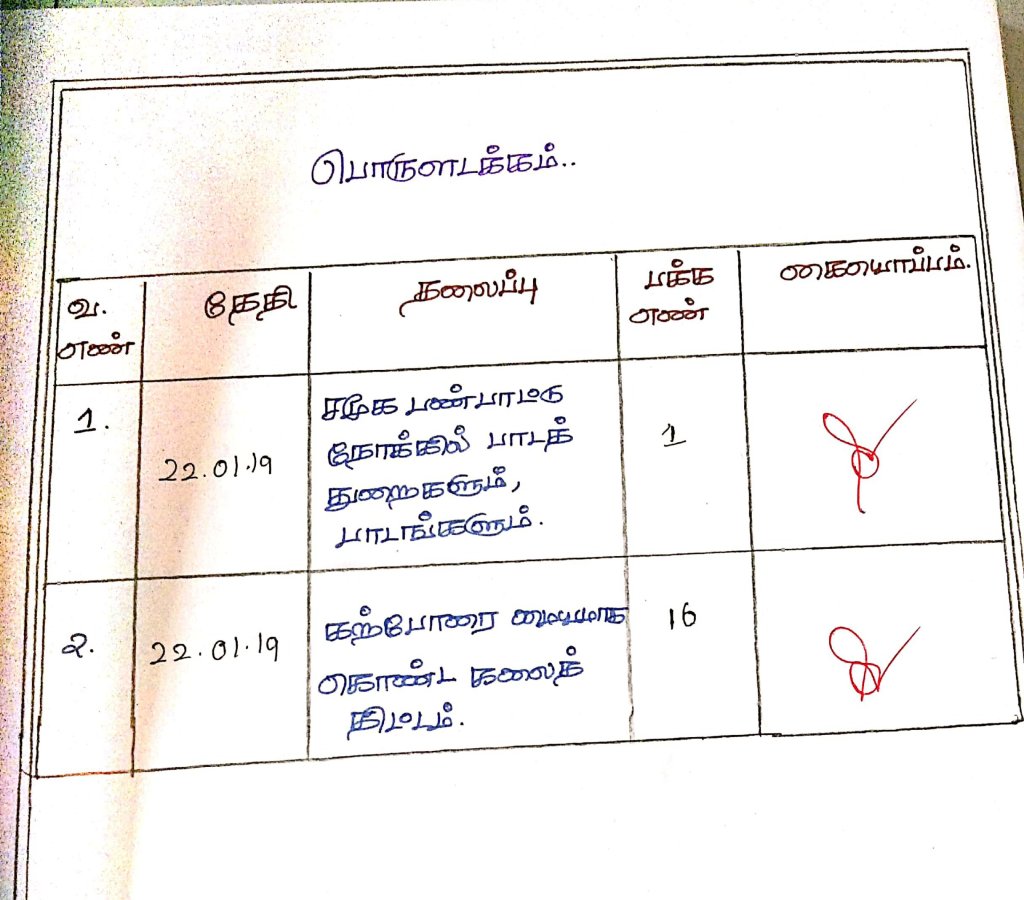 பொருளடக்கம்..
வ. எண் தேதி தலைப்பு பக்க எண் கையொப்பம்.
1. 22.01.19 சமூக பண்பாட்டு 1
நோக்கில் பாடத்
துறைகளும்,
பாடங்களும்.
2. 22.01.19 கற்போரை மையமாக 16
கொண்ட கலைத்
திட்டம்.